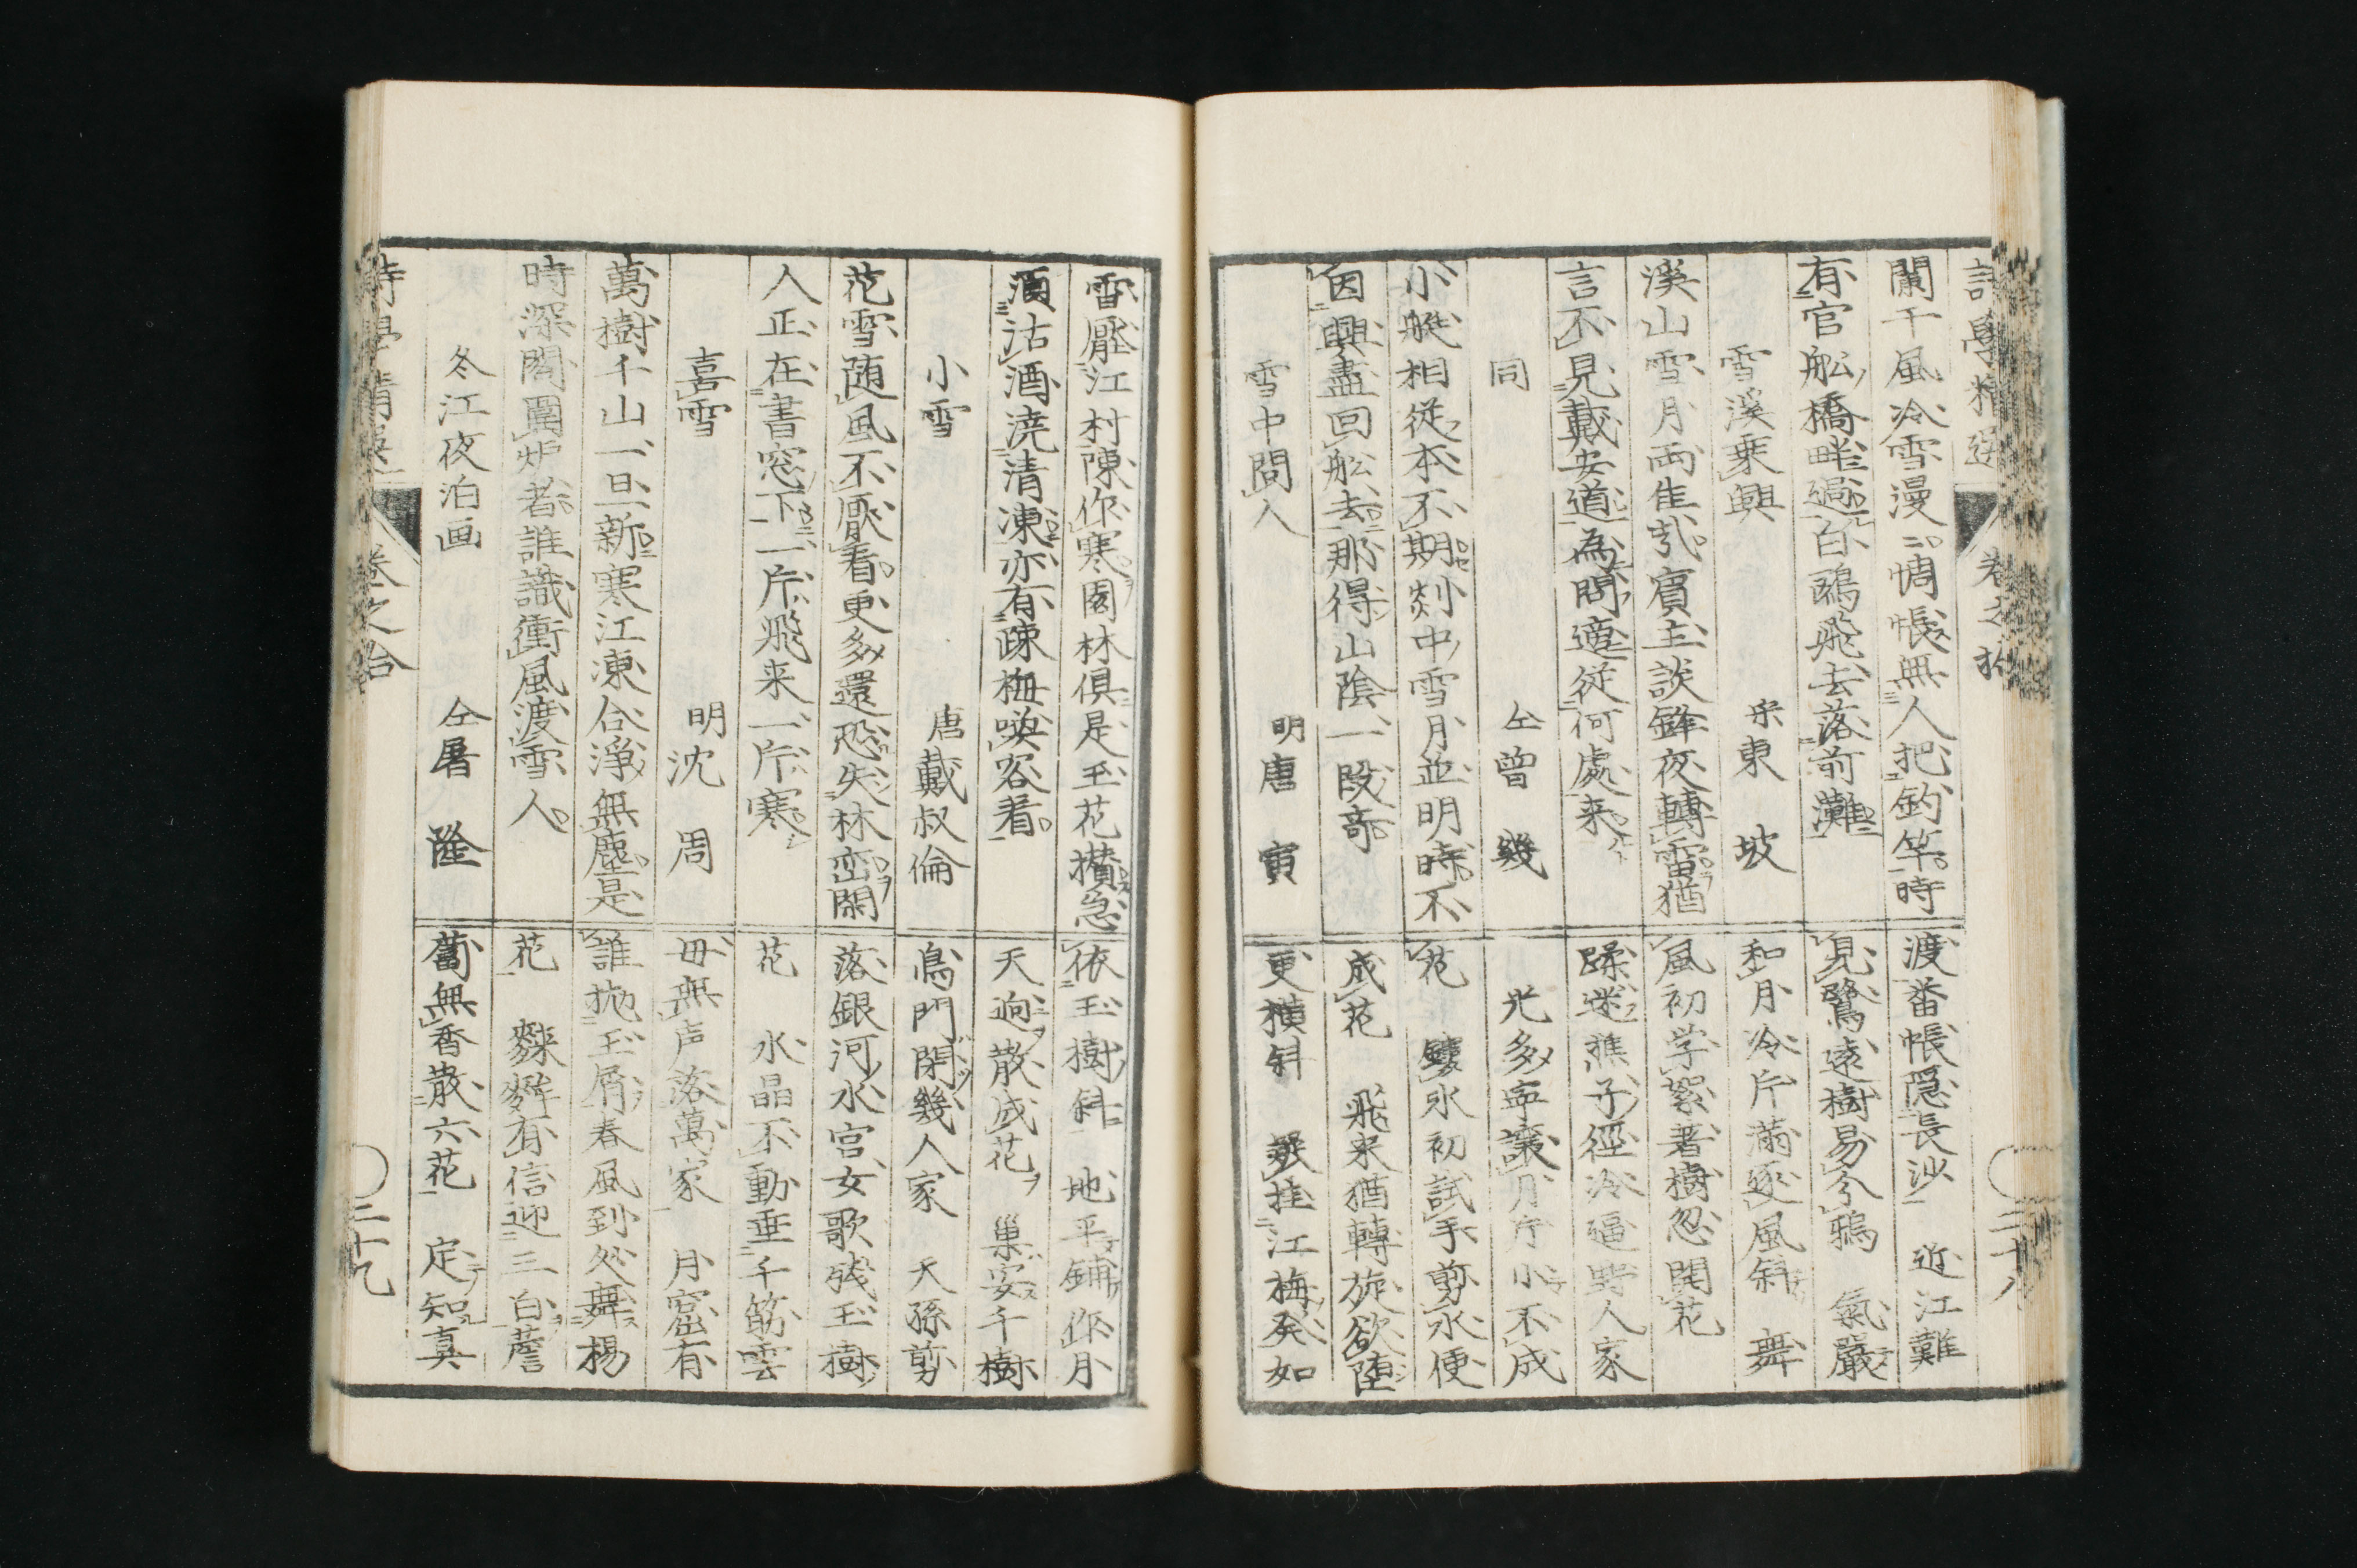 詩學精選 卷之拾 二十八
闌干風冷雪漫〻惆悵無人把釣竿時
有官舩橋畔過白鷗飛去落前灘
雪溪乗興 宋東坡
溪山雪月両佳哉賓主談鋒夜轉雷猶
言不見戴安道為問適従何處来
同 仝曽幾
小艇相従本不期剡中雪月並明時不
因興盡回舩去那得山陰一段竒
雪中問人 明唐寅
渡番帳隠長沙 近江難
見鷺遠樹易分鴉 氣嚴
和月冷片満逐風斜 舞
風初学絮著樹忽開花
蹂迷樵子徑冷逼野人家
光多寧譲月片小不成
花 鏤氷初試手剪水便
成花 飛来猶轉旋欲堕
更横斜 挂江梅発如
雪壓江村陳作寒園林俱是玉花攅急
須沽酒澆清凍亦有疎梅喚客看
小雪 唐戴叔倫
花雪随風不厭看更多還恐失林巒閑
人正在書窓下一片飛来一片寒
喜雪 明沈周
萬樹千山一旦新寒江凍合浄無塵是
時深閣圍炉者誰識衝風渡雪人
冬江夜泊画 仝屠隆
依玉樹斜 地平鋪作月
天逈散成花 巣安千樹
鳥門閉幾人家 天孫剪
落銀河水宮女歌残玉樹
花 水晶不動垂千筋雲
毋無声落萬家 月窟有
誰抛玉屑春風到処舞楊
花 麰有信迎三白薝
蔔無香散六花 定知真
詩學精選 卷之拾 二十九